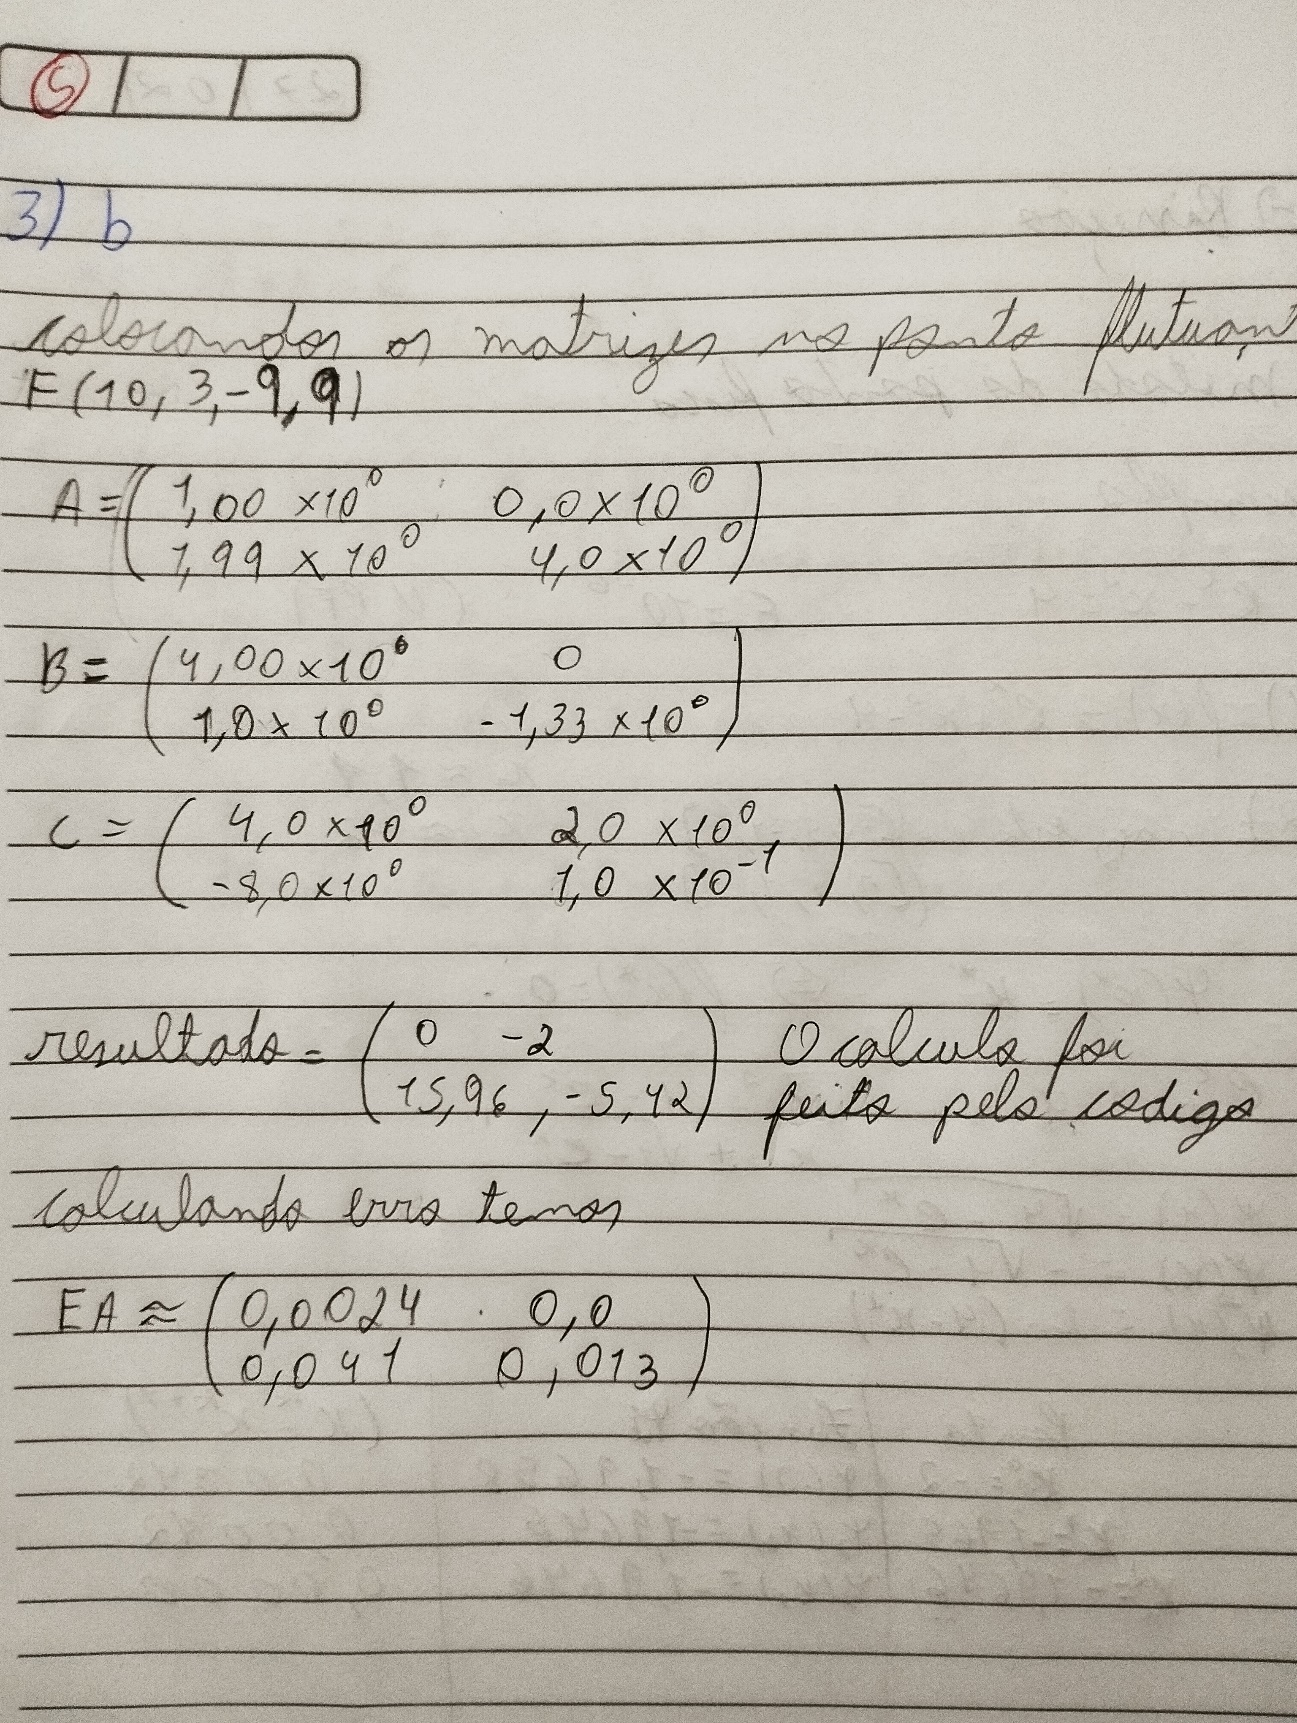 5
3) b
colocando as matrizes no ponto flutuan
F(10, 3, -9, 9)
A = ( 1,00 × 10⁰ 0,0 × 10⁰
1,99 × 10⁰ 4,0 × 10⁰ )
B = ( 4,00 × 10⁰ 0
1,0 × 10⁰ -1,33 × 10⁰ )
C = ( 4,0 × 10⁰ 2,0 × 10⁰
-8,0 × 10⁰ 1,0 × 10⁻¹ )
resultado = ( 0 -2 ) O calculo foi
15,96 , -5,42 ) feito pelo codigo
calculando erro temos
EA ≈ ( 0,0024 0,0
0,041 0,013 )